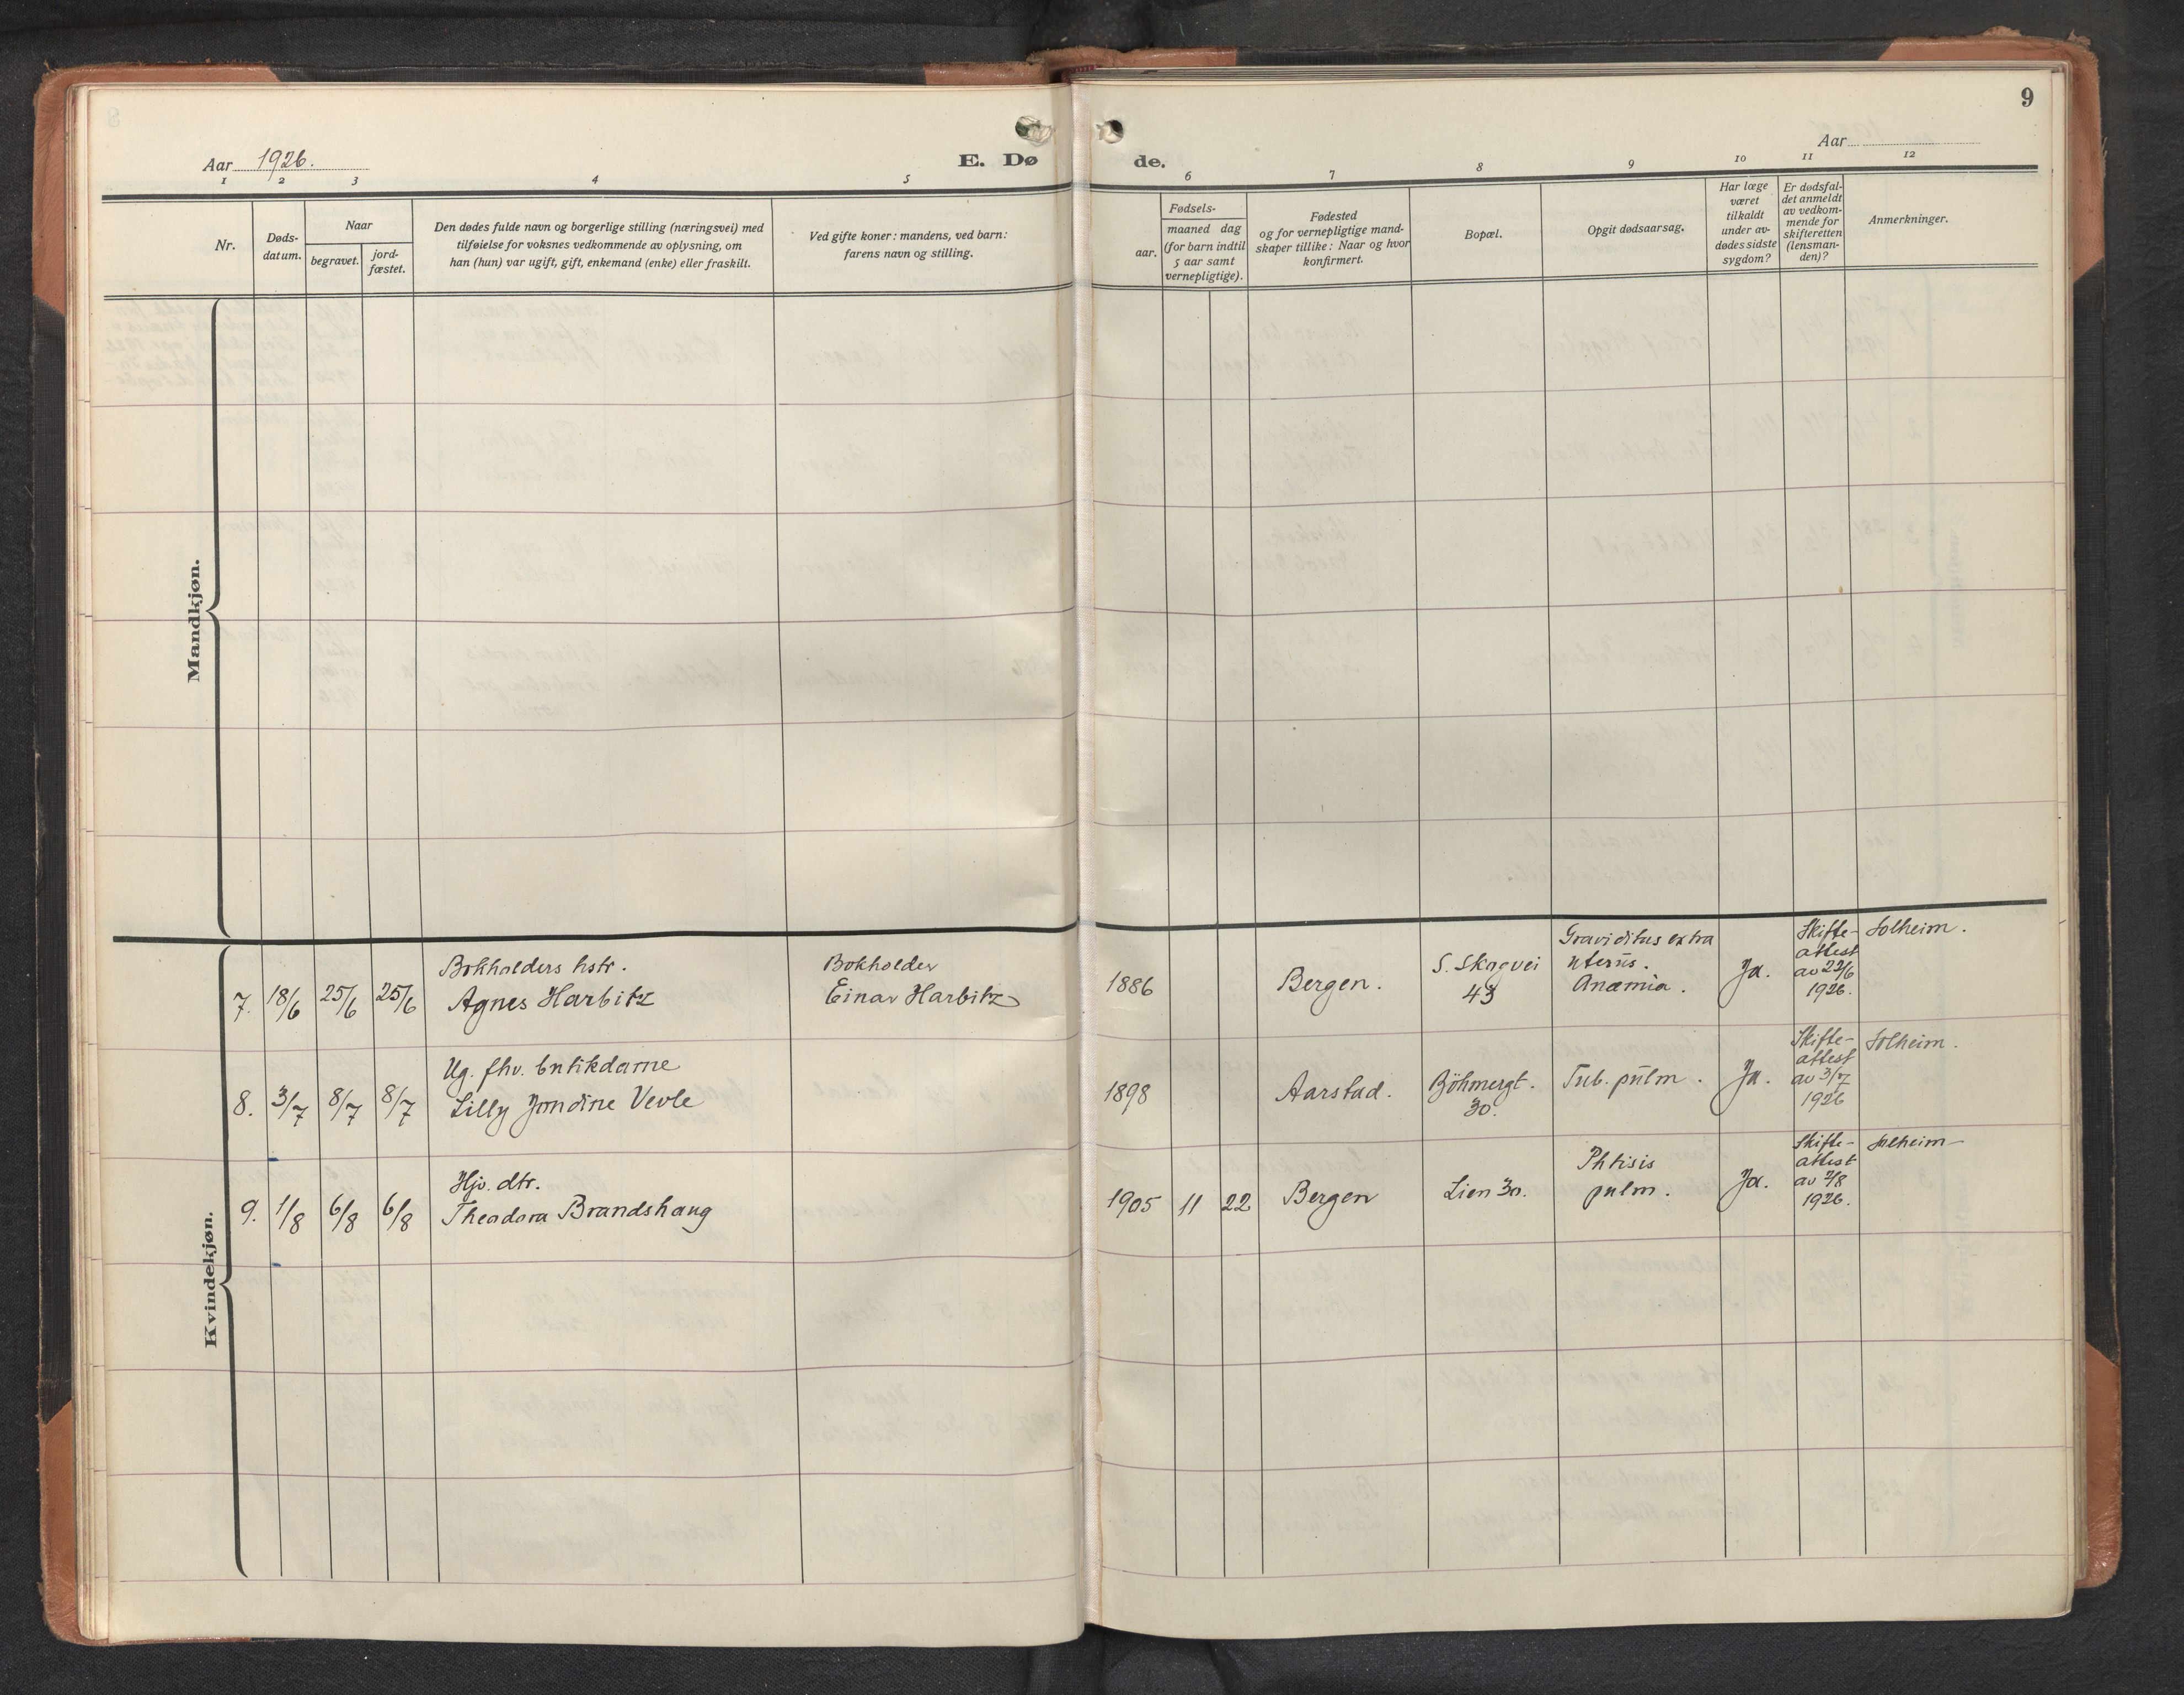 9
Aar 1926.
E. Dø
de.
Aar
1 2 3 4 5
6 7 8 9 10 11 12
Nr.
Døds-
datum.
Naar
begravet.
jord-
fæstet.
Den dødes fulde navn og borgerlige stilling (næringsvei) med
tilføielse for voksnes vedkommende av oplysning, om
han (hun) var ugift, gift, enkemand (enke) eller fraskilt.
Ved gifte koner: mandens, ved barn:
farens navn og stilling.
Fødsels-
aar.
maaned dag
(for barn indtil
5 aar samt
vernepligtige).
Fødested
og for vernepligtige mand-
skaper tillike: Naar og hvor
konfirmert.
Bopæl.
Opgit dødsaarsag.
Har læge
været
tilkaldt
under av-
dødes sidste
sygdom?
Er dødsfal-
det anmeldt
av vedkom-
mende for
skifteretten
(lensman-
den)?
Anmerkninger.
Mandkjøn.
Kvindekjøn.
7. 18/6 25/6 25/6
Bokholders hstr.
Agnes Harbitz
Bokholder
Einar Harbitz
1886
Bergen.
S. Skogvei
43
Graviditas extra
uterus.
Anæmia.
Ja.
Skifte-
attest
av 22/6
1926.
Solheim.
8. 3/7 8/7 8/7
Ug. fhv. butikdame
Lilly Jondine Vevle
1898
Aarstad.
Böhmergt.
30.
Tub. pulm.
Ja.
Skifte-
attest
av 3/7
1926
Solheim.
9. 1/8 6/8 6/8
Hjv. dtr.
Theodora Brandshaug
1905 11 22
Bergen
Lien 30.
Phtisis
pulm.
Ja.
Skifte-
attest
av 2/8
1926.
Solheim